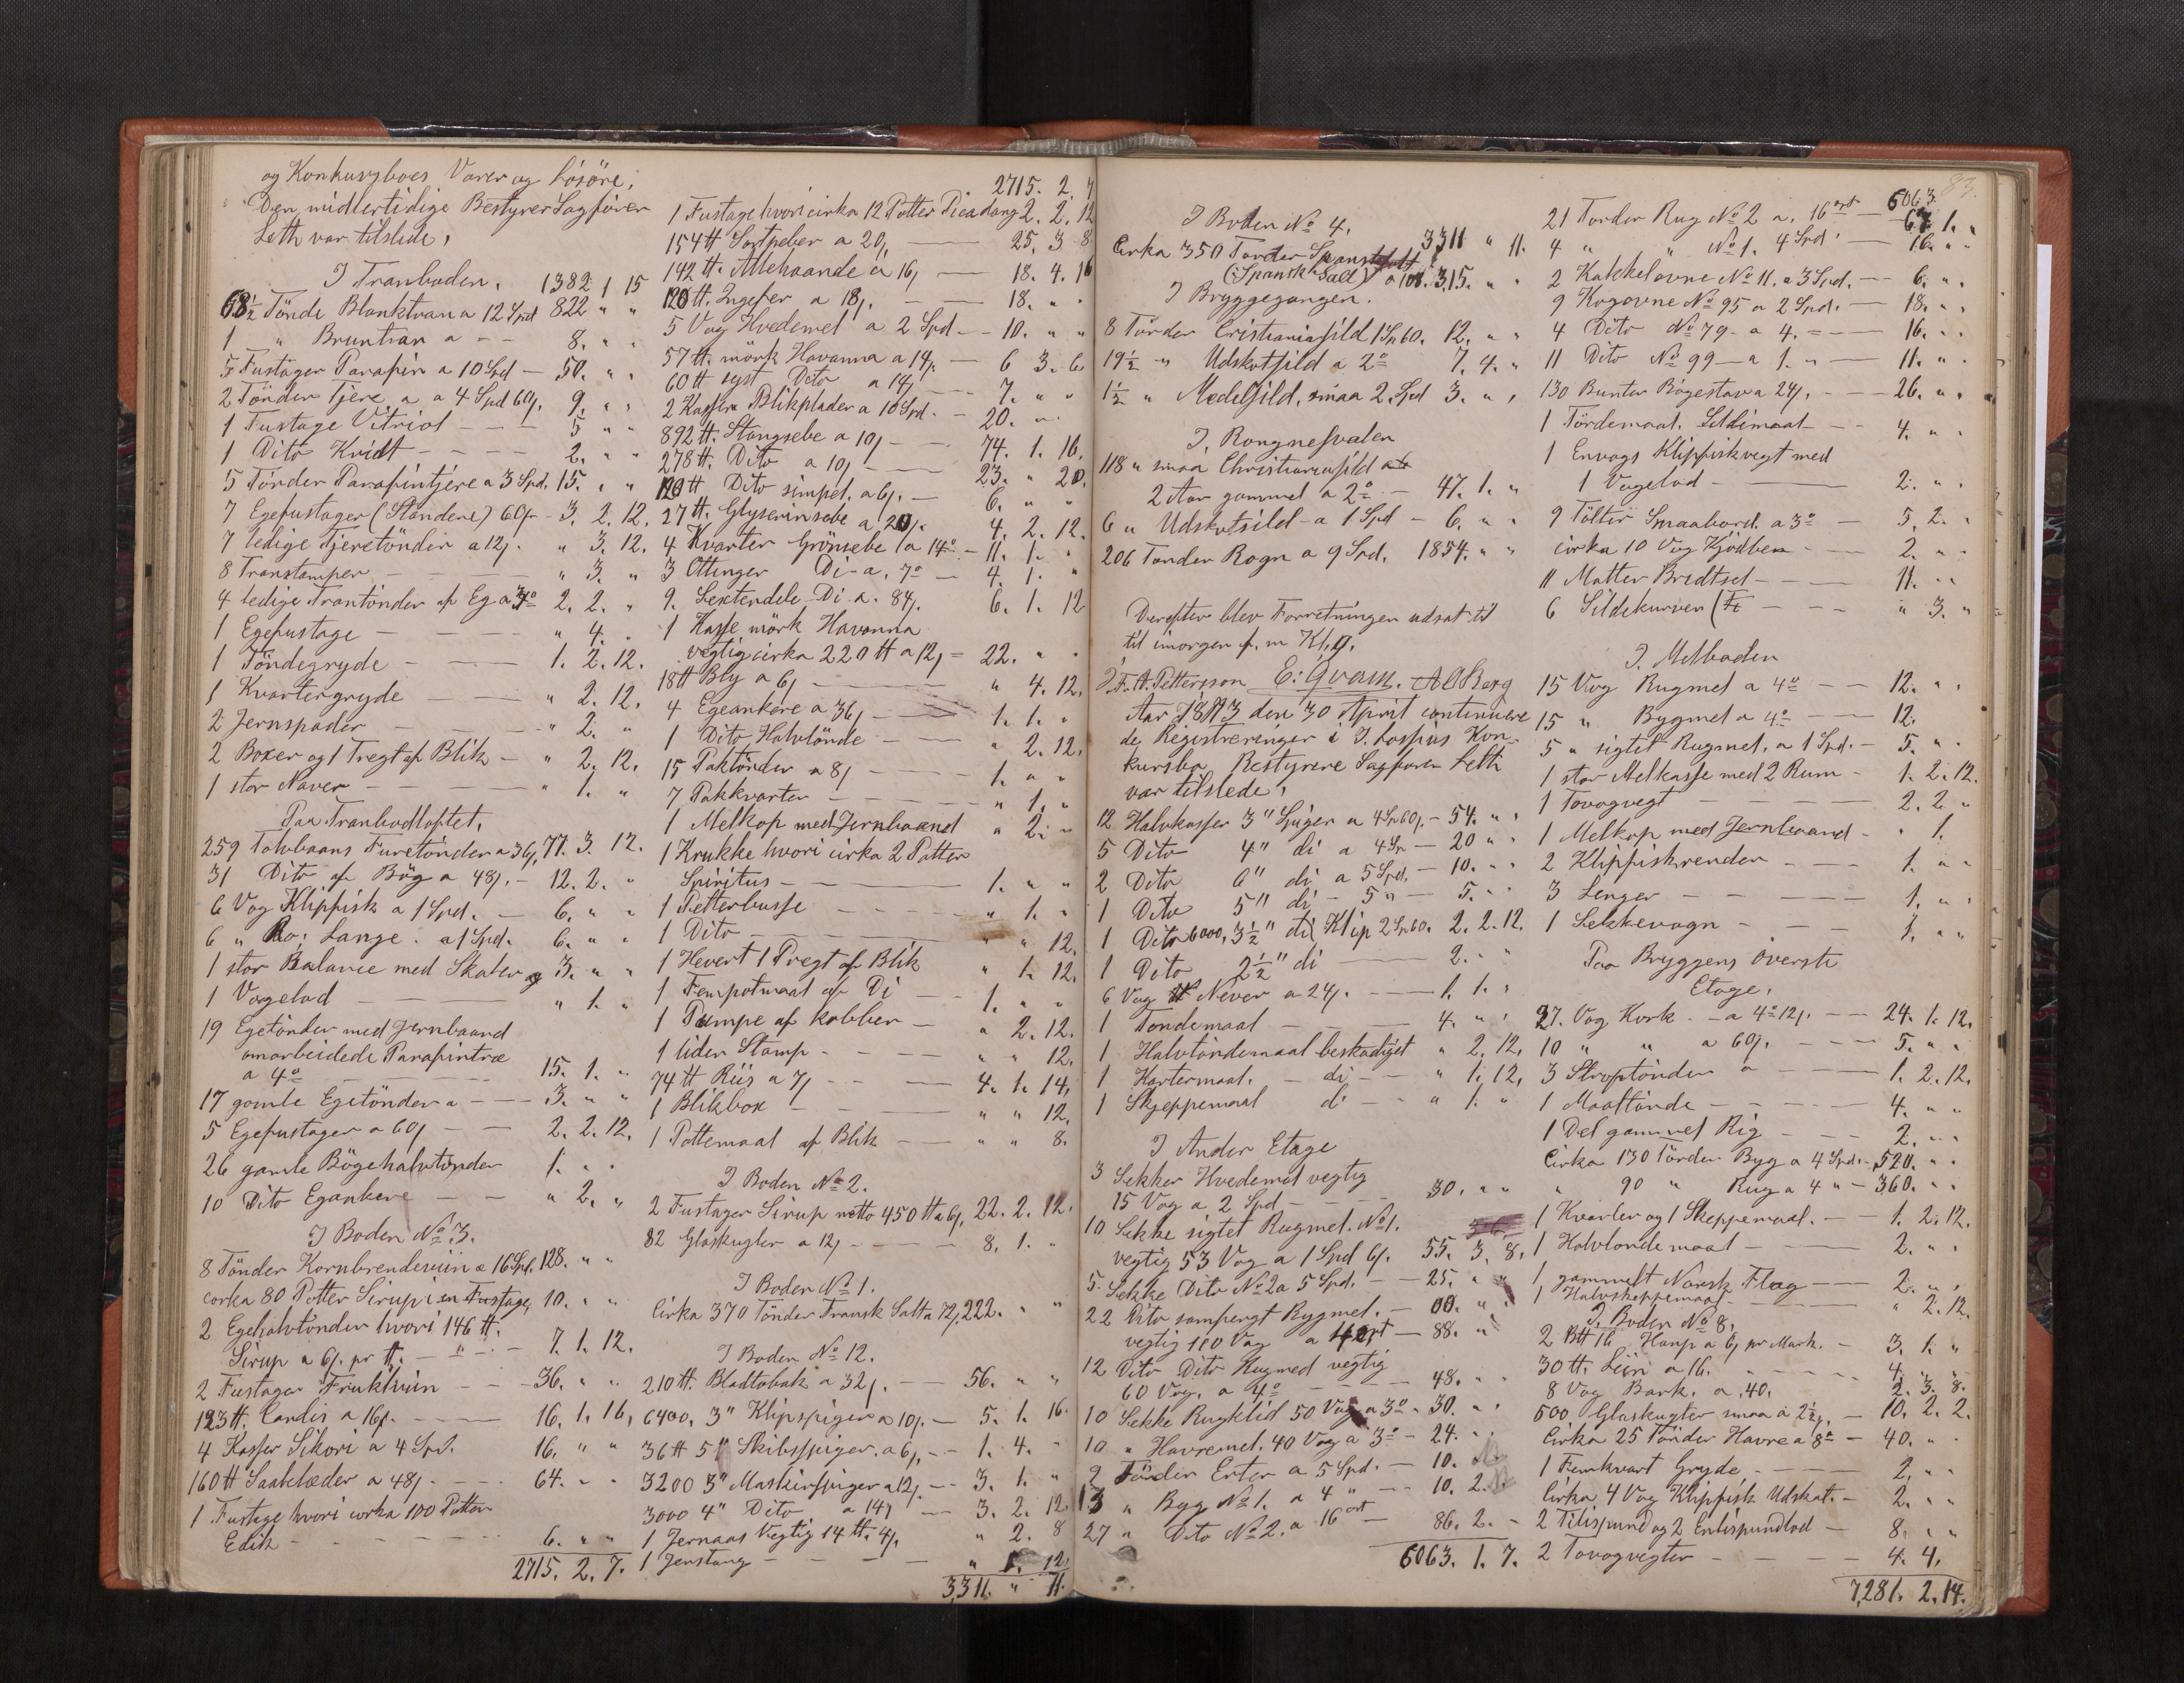 og Konkursboes Varer og Lösöre,
Den midlertidige Bestyrer Sagförer
Leth var tilstede,
I Tranboden. 1382 1 15
68½ Tönde Blanktran a 12 Spd 822 " "
1 " Bruntran a - - 8. " "
5 Fustager Parafin a 10 Spd - 50. " "
2 Tönder Tjere a a 4 Spd 60ş. 9. " "
1 Fustage Vitriol - - - 5 " "
1 Dito Kridt - - - - 2. " "
5 Tönder Parafintjere a 3 Spd. 15. " "
7 Egefustager (Standere) 60ş - 3. 2. 12.
7 ledige Tjeretönder a 12ş. " 3. 12.
8 Transtamper - - - " 3. "
4 ledige Trantönder af Eg a 3o 2. 2. "
1 Egefustage - - - - " 4. "
1 Töndegryde - - - 1. 2. 12.
1 Kvartergryde - - " 2. 12.
2 Jernspader - - - " 2. "
2 Boxer og 1 Tregt af Blik - " 2. 12.
1 stor Naver - - - - " 1. "
Paa Tranbodloftet.
259 Tolvbaans Furetönder a 36ş. 77. 3. 12.
31 Dito af Bög a 48ş. - 12. 2. "
6 Vog Klipfisk a 1 Spd. - 6. " "
6 " Lange. a 1 Spd. 6. " "
1 stor Balance med Skaler og 3. " "
1 Vogelod - - - - " 1. "
19 Egetönder med Jernbaand
omarbeidede Parafintræ
a 4o - - - - 15. 1. "
17 gamle Egetönder a - - - 3. " "
5 Egefustager a 60ş - - 2. 2. 12.
26 gamle Bögehalvtönder 1. " "
10 Dito Egankere - - " 2. "
I Boden No 3.
8 Tönder Kornbrendeviin a 16 Spd. 128. " "
corka 80 Potter Sirup i en Fustage, 10. " "
2 Egehalvtönder hvori 146 ℔.
Sirup a 6ş. pr ℔. - " - - 7. 1. 12.
2 Fustager Fruktviin - - - 36. " "
123 ℔. Candis a 16ş. - - - 16. 1. 16,
4 Kasser Sikori a 4 Spd. 16. " "
160 ℔ Saalelæder a 48ş. - - - 64. " "
1 Fustage hvori corka 100 Potter
Edik - - - - 6. " "
2715. 2. 7.
2715. 2. 7
1 Fustage hvori cirka 12 Potter 2. 2. 12
154 ℔ Sortpeber a 20ş - 25. 3 8
142 ℔. Allehaande a 16ş - 18. 4. 16
120 ℔. Ingefer a 18ş. - - 18. " "
5 Vog Hvedemel a 2 Spd - - 10. " "
57 ℔. mörk Havanna a 14ş. - 6 3. 6.
60 ℔ lyst Dito a 14ş - - 7. " "
2 Kasser Blikplader a 10 Spd. - 20. " "
892 ℔. Stangsebe a 10ş - - 74. 1. 16.
278 ℔. Dito a 10ş - - 23. " 20.
120 ℔ Dito simpel. a 6ş. - 6. " "
27 ℔. Glyserinsebe a 20ş. 4. 2. 12.
4 Kvarter Grönsebe a 14o. - 11. 1. "
3 Ottinger Di - a. 7o - 4. 1. "
9. Sextendele Di - a. 84ş. 6. 1. 12
1 Kasse mörk Havanna
vegtig cirka 220 ℔ a 12ş - 22. " "
18 ℔ Bly a 6ş - - - " 4. 12.
4 Egeankere a 36ş - - 1. 1. "
1 Dito Halvtönde - - - " 2. 12.
15 Paktönder a 8ş - - - 1. " "
7 Pakkvarter - - - - " 1. "
1 Melkop med Jernbaand " 2. "
1 Krukke hvori cirka 2 Potter
Spiritus - - - - 1. " "
1 Peberbusse - - - " 1. "
1 Dito - - - - " " 12.
1 Hevert 1 Tregt af Blik " 1. 12.
1 Fempotmaal af Di - - 1. " "
1 Pumpe af kobber - " 2. 12.
1 liden Stamp - - - - " " 12.
74 ℔ Riis a 7ş - - - 4. 1. 14.
1 Blikbox - - - - " " 12.
1 Pottemaal af Blik - - " " 8.
I Boden No 2.
2 Fustager Sirup netto 450 ℔ a 6ş. 22. 2. 12.
82 Glaskugler a 12ş - - - 8. 1. "
I Boden No 1.
Cirka 370 Tönder Fransk Salt a 72ş, 222. " "
I Boden No 12.
210 ℔. Bladtobak a 32ş. - 56. " "
6400, 3" Klipspiger a 10ş. - 5. 1. 16.
36 ℔ 5" Skibsspiger. a 6ş. - - 1. 4. "
3200 3" Maskinspiger a 12ş. - - 3. 1. "
3000 4" Dito a 14ş - 3. 2. 12
1 Jernaas Vegtig 14 ℔. 4ş. " 2. 8
1 Jernstang - - - - " 1. 12.
3,311. " 11.
83.
I Boden No 4.
3311 " 11.
Cirka 350 Tönder
(: Spansk Salt) a 108. 315. " "
I Bryggegangen.
8 Tönder Cristianiasild 1 Sp 60. 12. " "
19½ " Udskotsild a 2o 7. 4. "
1½ " Medelsild, smaa 2. Spd 3. " "
I. Rongnesvalen
118 " smaa Christianiasild
2 Aar gammel a 2o - 47. 1. "
6 " Udskotsild - a 1 Spd - 6. " "
206 Tönder Rogn a 9 Spd. 1854. " "
Derefter blev Forretningen udsat til
til imorgen f. m Kl. 9.
F. A. Pettersson E: Qvam. A O Berg
Aar 1873 den 30 April continuere-
des Registreringer i J. Kon-
kursbo. Bestyrere Sagförer Leth
var tilstede,
12 Halvkasser 3" Spiger a 4 Sp 60ş. - 54. " "
5 Dito 4" di a 4 Sp - 20 " "
2 Dito 6" di a 5 Spd. - 10. " "
1 Dito 5" di - 5 " - 5. " "
1 Dito 6000, 3½" di Klip 2 Sp 60. 2. 2. 12.
1 Dito 2½" di - - 2. " "
6 Vog Never a 24ş. - - 1. 1. "
1 Töndemaal - - - 4. " "
1 Halvtöndemaal beskadiget " 2. 12.
1 Kortermaal. - di - - " 1. 12.
1 Skjeppemaal di - - " 1. "
I Anden Etage
3 Sekker Hvedemel vegtig
15 Vog a 2 Spd - - - 30. " "
10 Sekke sigtet Rugmel. No 1.
vegtig 53 Vog a 1 Spd 6ş. 55. 3. 8.
5. Sekke Dito No 2 a 5 Spd. - - 25. " "
22 Dito sampengt Bygmel. -
vegtig 110 Vog a 4 ort - 88. "
12 Dito Dito Rugmel vegtig
60 Vog. a 4o - - - 48. " "
10 Sekke Rugklid 50 Vog a 3o - 30. " "
10 " Havremel. 40 Vog a 3o - 24. " "
2 Tönder Erter a 5 Spd. - 10.
13 " Byg No 1. a 4 " - - 10. 2.
27 " Dito No 2. a 16 ort - 86. 2. -
6063. 1. 7.
6063.
21 Tönder Rug No 2 a. 16 ort - 67 1. "
4 " " No 1. 4 Spd. - 16. " "
2 Kakkelovne No 11. a 3 Spd. - - 6. " "
9 Kogovne No 95 a 2 Spd. - - 18. " "
4 Dito No 79 - a 4. = - 16. " "
11 Dito No 99 - a 1. " - 11. " "
130 Bunter Bögestav a 24ş. - - - 26. " "
1 Töndemaal. Sildemaal - - 4. " "
1 Envogs Klipfiskvegt med
1 Vogelod - - - 2. " "
9 Tölter Smaabord. a 3o - 5. 2. "
cirka 10 Vog Kjödben - - - 2. " "
11 Matter Bredtsel - - - 11. " "
6 Sildekurver - - - " 3. "
I. Melboden
15 Vog Rugmel a 4o - - 12. " "
15 " Bygmel a 4o - - 12.
5 " sigtet Rugmel. a 1 Spd. - 5. " "
1 stor Melkasse med 2 Rum - 1. 2. 12.
1 Tovogvegt - - - - 2. 2 "
1 Melkop med Jernbaand - " 1.
2 Klipfiskrender - - - 1. " "
3 Senger - - - - 1. " "
1 Sekkevogn - - - - 1. " "
Paa Bryggens Överste
Etage.
27. Vog Kork - - a 4o 12ş. - - 24. 1. 12.
10 " " a 60ş. - - - 5. " "
3 Stroptönder a - - - 1. 2. 12.
1 Maaltönde - - - - 4. " "
1 Del gammel Rig - - - 2. " "
Cirka 130 Tönder Byg a 4 Spd. - 520. " "
" 90 " Rug a 4 " - 360. " "
1 Kvarter og 1 Skeppemaal. - - 1. 2. 12.
1 Halvtöndemaal - - - 2. " "
1, gammelt Norsk Flag - - 2. " "
1 Halvskeppemaal - - - " 2. 12.
I. Boden No 8.
2 B℔ 16 Hamp a 6ş pr Mark. - 3. 1. "
30 ℔. Liin a 16. - - - 4.
8 Vog Bark. a. 40. 2. 3. 8.
500 Glaskugler smaa a 2½ş. - 10. 2. 2.
Cirka 25 Tönder Havre a 8o - 40. " "
1 Femkvart Gryde. - - - 2. " "
Cirka 4 Vog Klipfisk Udskot. - 2. " "
2 Tilispund og 2 Enlispundlod - 8. " "
2 Tovogvegter - - - - 4. 4.
7,281. 2. 14.